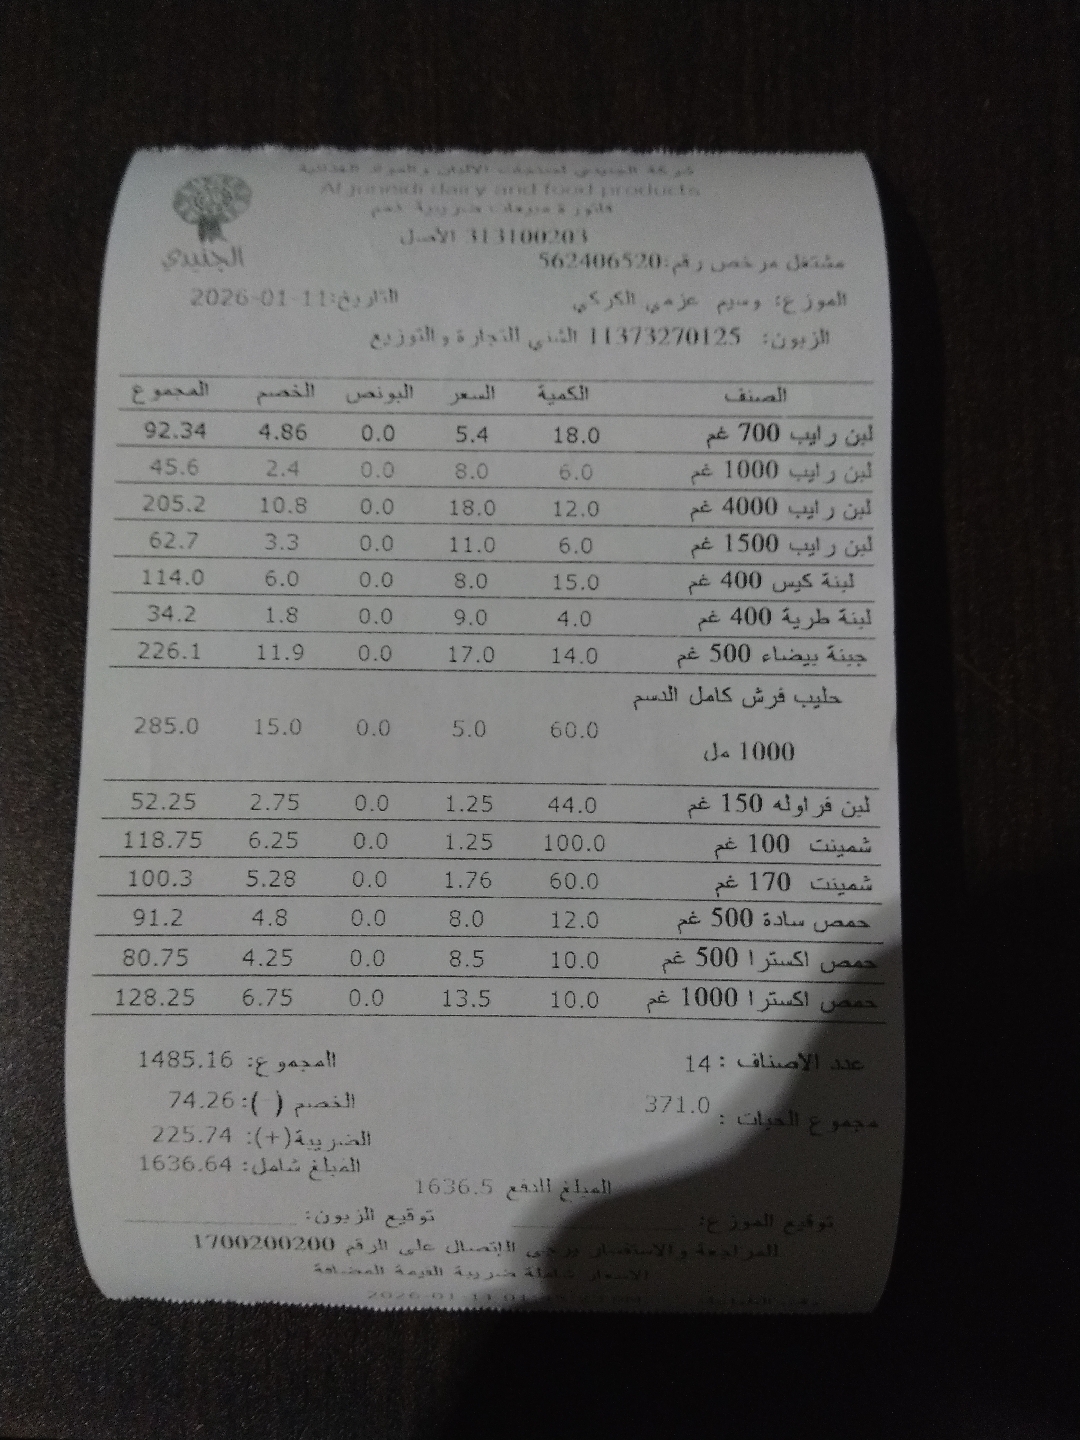 شركة الجنيدي لمنتجات الألبان والمواد الغذائية
Al juneidi dairy and food products
فاتورة مبيعات ضريبية خصم
313100203 الأصل
الجنيدي
مشتغل مرخص رقم:562406520
الموزع: وسيم عزمي الكركي التاريخ:11-01-2026
الزبون: 11373270125 الشني للتجارة والتوزيع
الصنف الكمية السعر البونص الخصم المجموع
لبن رايب 700 غم 18.0 5.4 0.0 4.86 92.34
لبن رايب 1000 غم 6.0 8.0 0.0 2.4 45.6
لبن رايب 4000 غم 12.0 18.0 0.0 10.8 205.2
لبن رايب 1500 غم 6.0 11.0 0.0 3.3 62.7
لبنة كيس 400 غم 15.0 8.0 0.0 6.0 114.0
لبنة طرية 400 غم 4.0 9.0 0.0 1.8 34.2
جبنة بيضاء 500 غم 14.0 17.0 0.0 11.9 226.1
حليب فرش كامل الدسم
1000 مل 60.0 5.0 0.0 15.0 285.0
لبن فراوله 150 غم 44.0 1.25 0.0 2.75 52.25
شمينت 100 غم 100.0 1.25 0.0 6.25 118.75
شمينت 170 غم 60.0 1.76 0.0 5.28 100.3
حمص سادة 500 غم 12.0 8.0 0.0 4.8 91.2
حمص اكسترا 500 غم 10.0 8.5 0.0 4.25 80.75
حمص اكسترا 1000 غم 10.0 13.5 0.0 6.75 128.25
عدد الاصناف : 14 المجموع: 1485.16
مجموع الحبات : 371.0 الخصم (-): 74.26
الضريبة(+): 225.74
المبلغ شامل: 1636.64
المبلغ للدفع 1636.5
توقيع الموزع: توقيع الزبون:
المراجعة والاستفسار يرجى الإتصال على الرقم 1700200200
الاسعار شاملة ضريبة القيمة المضافة